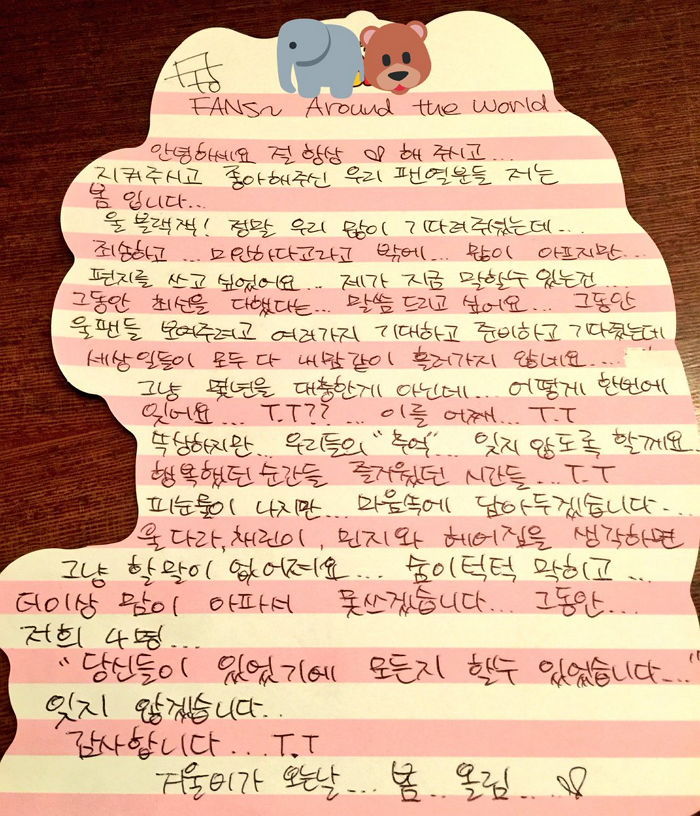 FANS~ Around the World.
안녕하세요 절 항상 ♡ 해 주시고...
지켜주시고 좋아해주신 우리 팬열분들 저는
봄 입니다...
울 블랙잭! 정말 우리 많이 기다려주셨는데...
죄송하고... 미안하다고라고 밖에... 많이 아프지만...
편지를 쓰고 싶었어요... 제가 지금 말할수 있는건...
그동안 최선을 다했다는... 말씀 드리고 싶어요... 그동안
울팬들 보여주려고 여러가지 기대하고 준비하고 기다렸는데
세상일들이 모두 다 내맘같이 흘러가지 않네요....
그냥 몇년을 대충한게 아닌데... 어떻게 한번에
잊어요... T.T?? ... 이를 어째... T.T
속상하지만... 우리들의 "추억"... 잊지 않도록 할께요..
행복했던 순간들 즐거웠던 시간들... T.T
피눈물이 나지만... 마음속에 담아두겠습니다...
울 다라, 채린이, 민지와 헤어짐을 생각하면
그냥 할말이 없어져요... 숨이턱턱 막히고...
더이상 맘이 아파서 못쓰겠습니다... 그동안...
저희 4명...
"당신들이 있었기에 모든지 할수 있었습니다..."
잊지 않겠습니다..
감사합니다... T.T
겨울비가 오는날... 봄.. 올림... ♡